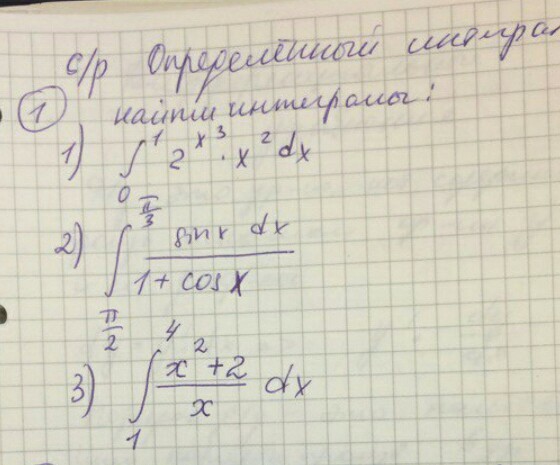 с/р Определённый интеграл
① найти интегралы:
1) ∫₀¹ 2^{x^3} · x^2 dx
2) ∫_{π/2}^{π/3} \frac{sin x dx}{1 + cos x}
3) ∫₁⁴ \frac{x^2 + 2}{x} dx